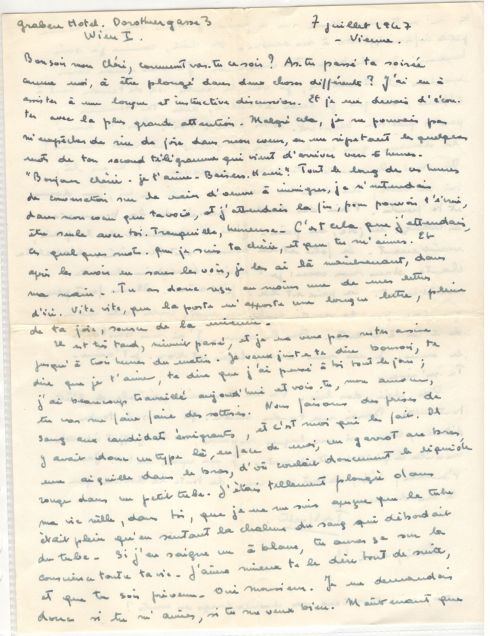 Graben Hotel. Dorotheergasse 3
Wien I.
7 juillet 1947
- Vienne.
Bonsoir mon chéri, comment vas-tu ce soir ? As-tu passé ta soirée
comme moi, à être plongé dans deux choses différentes ? J'ai eu à
assister à une longue et instructive discussion. Et je me devais d'écou-
ter avec la plus grande attention. Malgré cela, je ne pouvais pas
m'empêcher de rire de joie dans mon cœur, en me répétant les quelques
mots de ton second télégramme qui vient d'arriver vers 6 heures.
"Bonjour chérie. je t'aime. Baisers. Henri". Tout le long de ces heures
de conversation sur la main d'œuvre à immigrer, je n'entendais
dans mon cœur que ta voix, et j'attendais la fin, pour pouvoir t'écrire,
être seule avec toi. Tranquille, heureuse - C'est cela que j'attendais,
ces quelques mots. que je suis ta chérie, et que tu m'aimes. Et
après les avoir eu sans les voir, je les ai là maintenant, dans
ma main - Tu as donc reçu au moins une de mes lettres
d'ici. Vite vite, que la poste m'apporte une longue lettre, pleine
de ta joie, soeur de la mienne -
Il est très tard, minuit passé, et je ne veux pas rester assise
jusqu'à trois heures du matin. Je veux juste te dire bonsoir, te
dire que je t'aime, te dire que j'ai pensé à toi tout le jour ;
j'ai beaucoup travaillé aujourd'hui et vois-tu, mon amour,
tu vas me faire faire des sottises. Nous faisons des prises de
sang aux candidats émigrants, et c'est moi qui les fait. Il
y avait donc un type là, en face de moi, un garrot au bras,
une aiguille dans le bras, d'où coulait doucement le liquide
rouge dans un petit tube. J'étais tellement plongée dans
ma vie à elle, dans toi, que je ne me suis aperçue que le tube
était plein qu'en sentant la chaleur du sang qui débordait
du tube - Si j'en saigne un à blanc, tu auras ça sur la
conscience toute ta vie - J'aime mieux te le dire tout de suite,
et que tu sois prévenu - Oui monsieur. Je me demandais
donc si tu m'aimes, si tu me veux bien. Maintenant que